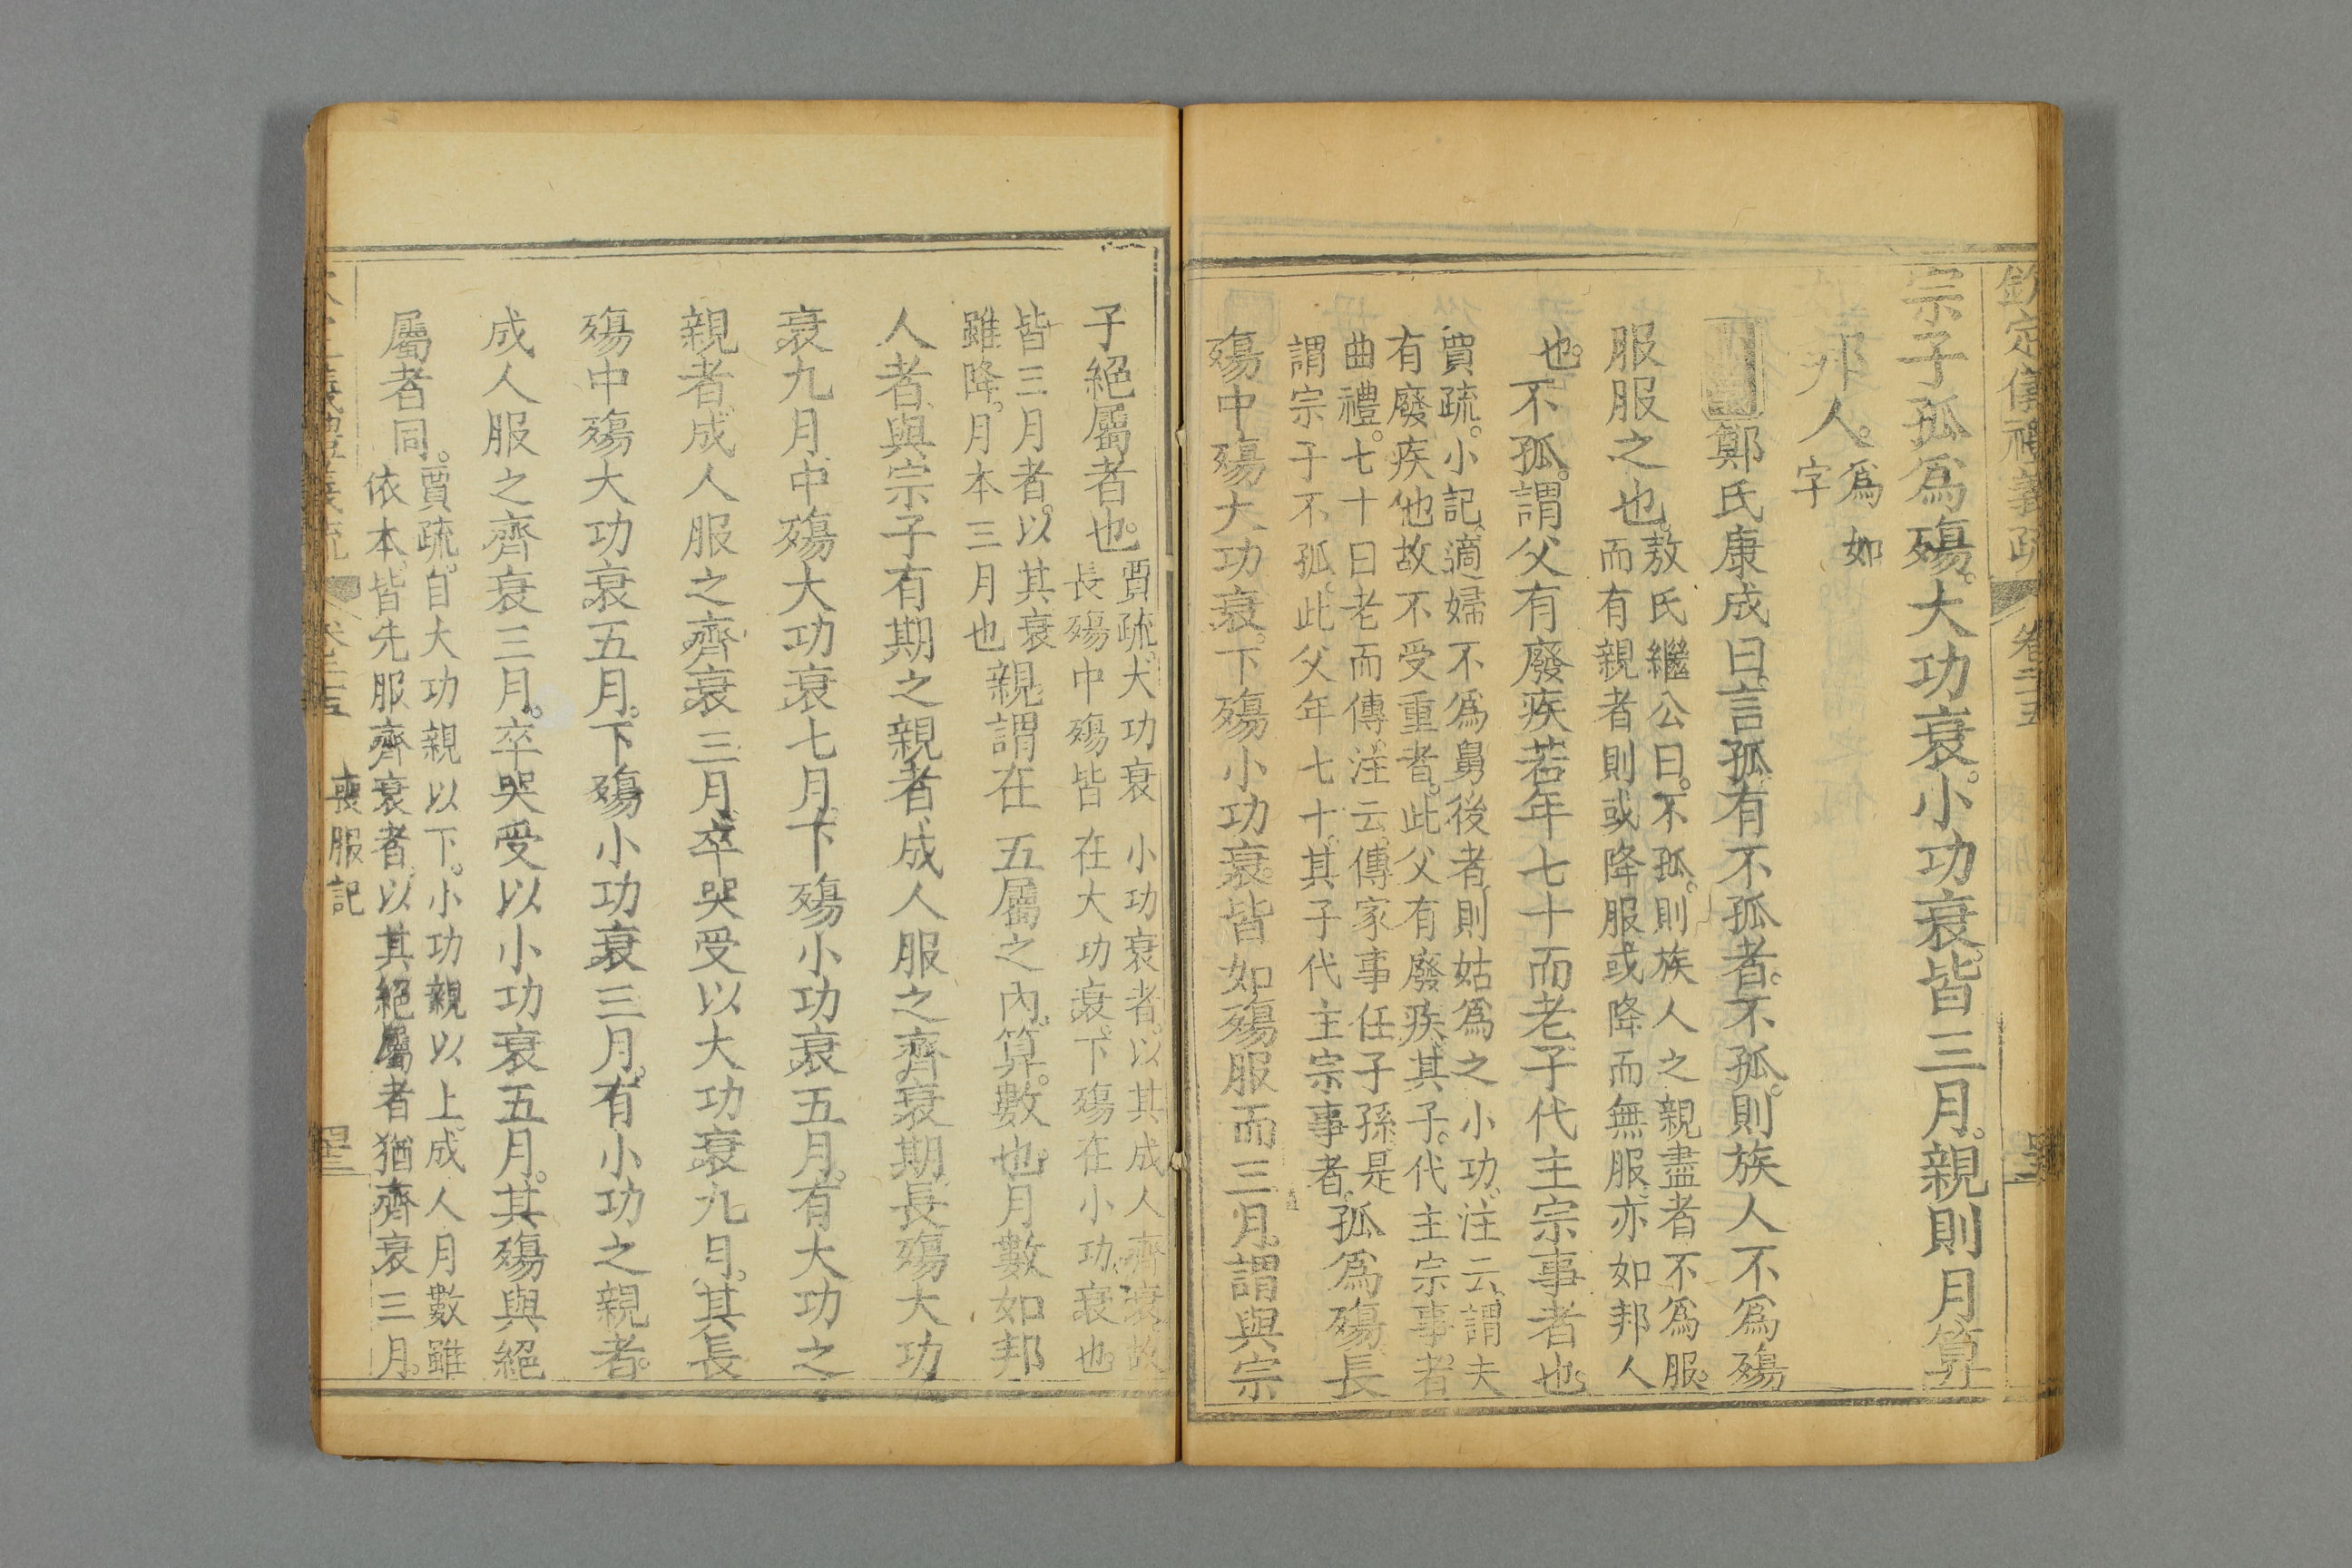 欽定儀禮義疏 卷二十五
宗子孤爲殤。大功衰。小功衰。皆三月。親則月算
如邦人。爲如字
鄭氏康成曰。言孤。有不孤者。不孤。則族人不爲殤
服服之也。敖氏繼公曰。不孤。則族人之親盡者不爲服。而有親者則或降服或降而無服。亦如邦人
也。不孤。謂父有廢疾若年七十而老。子代主宗事者也。
賈疏。小記。適婦不爲舅後者。則姑爲之小功。注云。謂夫
有廢疾他故不受重者。此父有廢疾。其子。代主宗事。者
曲禮。七十曰老而傳。注云。傳家事任子孫。是
謂宗子不孤。此父年七十。其子代主宗事者。孤爲殤。長
殤中殤大功衰。下殤小功衰。皆如殤服而三月。謂與宗
子絕屬者也。賈疏。大功衰小功衰者。以其成人齊衰。故長殤中殤皆在大功衰。下殤在小功衰也。
皆三月者。以其衰雖降。月本三月也親。謂在五屬之內。算。數也。月數如邦
人者。與宗子有期之親者。成人服之齊衰期。長殤大功
衰九月。中殤大功衰七月。下殤小功衰五月。有大功之
親者。成人服之齊衰三月。卒哭受以大功衰九月。其長
殤中殤大功衰五月。下殤小功衰三月。有小功之親者。
成人服之齊衰三月。卒哭受以小功衰五月。其殤與絕
屬者同。賈疏。自大功親以下。小功親以上。成人月數雖依本。皆先服齊衰者。以其絕屬者猶齊衰三月。
喪服記